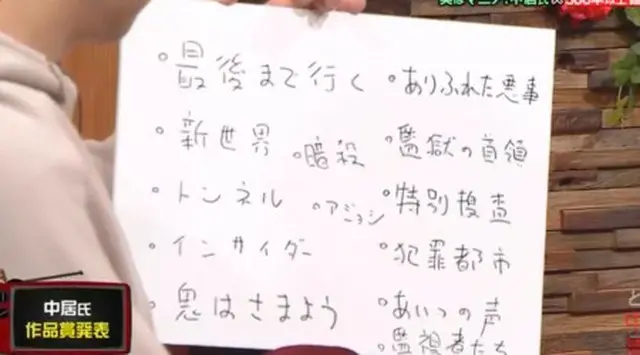 ・最後まで行く
・新世界
・暗殺
・トンネル
・アジョシ
・インサイダー
・鬼はさまよう
・ありふれた悪事
・監獄の首領
・特別捜査
・犯罪都市
・あいつの声
・監視者たち
中居氏
作品賞発表